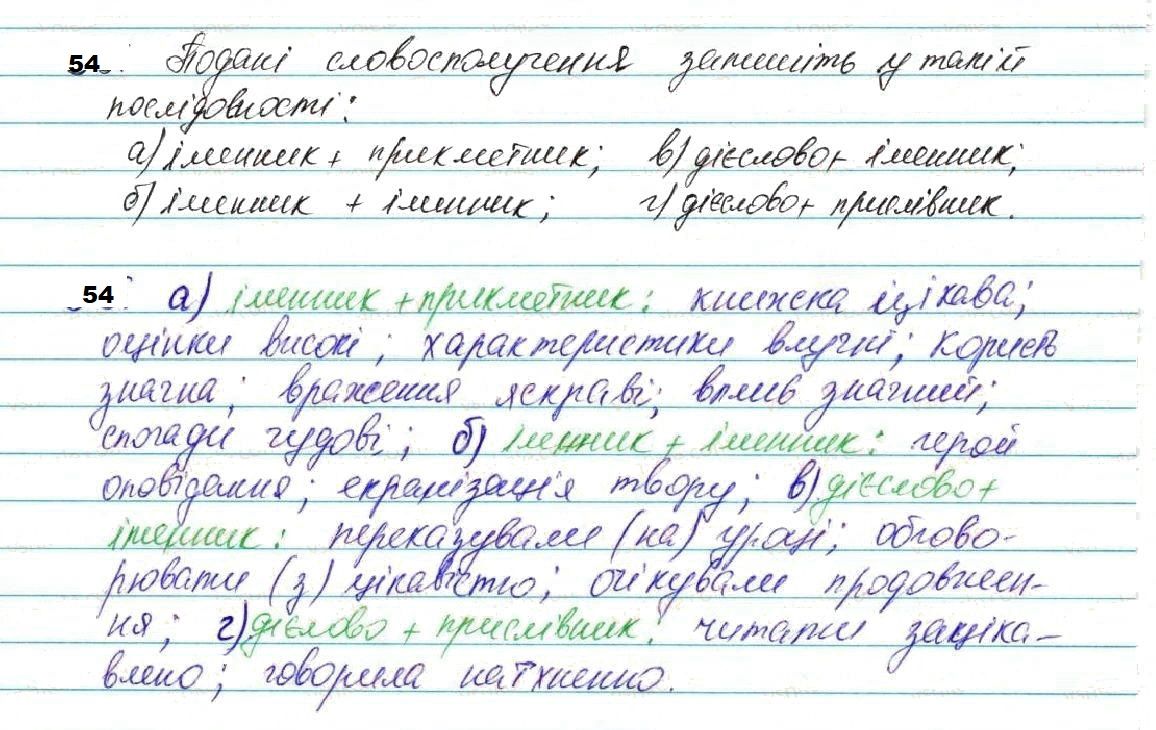 54. Подані словосполучення запишіть у такій
послідовності:
а) іменник + прикметник; в) дієслово + іменник;
б) іменник + іменник; г) дієслово + прислівник.
54 а) іменник + прикметник: книжка цікава;
оцінки високі; характеристики влучні; користь
значна; враження яскраві; вплив значний;
спогади чудові; б) іменник + іменник: герой
оповідання; екранізація твору; в) дієслово +
іменник: переказували (на) уроці; обгово-
рювати (з) цікавістю; очікували продовжен-
ня; г) дієслово + прислівник: читати заціка-
влено; говорила натхненно.